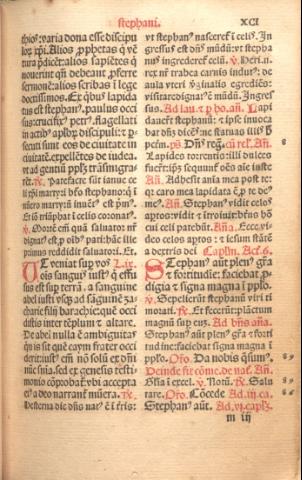 stephani. XCI
thios: varia dona esse discipu
lor̄ xp̄i. Alios prophetas q̄ vē
tura p̄dicēt: alios sapiētes q̄
nouerint qn̄ debeant, proferre
sermonē: alios scribas ī lege
doctissimos. Ex q̄bus lapida
tus est stephan⁹. paulus occi
sus: crucifix⁹ petr⁹. flagellati
in actib⁹ aplor̄ discipuli: t p
secuti sunt eos de ciuitate in
ciuitatē. expellētes de iudea.
vt ad gentiū pplm̄ trāsmigra
rēt. R̄. Patefacte sūt ianue ce
li xp̄i martyri btō stephano: q̄ ī
nūero martyrū inuēt⁹ est prim⁹.
Et iō triūphat ī celis coronat⁹.
v̄. Mortē em̄ quā saluator nr̄
dignat⁹ est, p oīb⁹ pati: hāc ille
primus reddidit saluatori. Et.
UT veniat sup vos Le. ix.
oīs sanguis iust⁹ q̄ effu
sus est sup terrā. a sanguine
abel iusti vsq̄ ad sāguinē za
charie filij barachie: quē occi
distis inter tēplum t altare.
De abel nulla ē ambiguitas
q̄n is sit quē cayn frater occi
derit: iust⁹ em̄ nō solū ex dn̄i
nūc snīa. sed ex genesis testi
monio cōprobat̄: vbi accepta
ei⁹ a deo narrant̄ mūera. R̄.
Hesterna die dn̄s nat⁹ ē ī tris:
vt stephan⁹ nasceret̄ ī celis. In
gressus est dn̄s mūdū: vt stepha
nus ingrederet̄ celū. v̄. Heri. n.
rex nr̄ trabea carnis indut⁹: de
aula vteri v̄ginalis egrediēs:
visitare dignat⁹ ē mūdū. Ingref
sus. Ad lau. t p ho. an̄. Lapi
dauerūt stephanū: t ip̄e inuoca
bat dn̄ȝ dicēs: ne statuas illis
p̄cm̄. ps. Dn̄s reḡ. cū rel⁹. An̄.
Lapides torrentis: illi dulces
fuerūt: ip̄ȝ sequunt̄ oēs aīe iuste
An̄. Adhesit aīa mea post te:
q̄r caro mea lapidata ē, p te de⁹
me⁹. An̄. Stephan⁹ vidit celos
aptos: vidit t itroiuit: bt̄us hō
cui celi patebāt. An̄a. Ecce vi
deo celos aptos: t iesum stātē
a dextris dei Caplm̄. Act. 6.
Stephan⁹ aūt plen⁹ grā
t fortitudīe: faciebat p̄
digia t signa magna ī pplo.
v̄. Sepelierūt stephanū viri ti
morati. R̄. Et fecerūt: plāctum
magnū sup eum. Ad bn̄s an̄a.
Stephan⁹ aūt plen⁹ grā t forti
tudīe: faciebat signa magna ī
pplo. Oro. Da nobis q̄sum⁹.
Deinde fit cōme. de nat. An̄.
Glia ī excel. v̄. Notū. R̄. Salu
tare. Oro. Cōcede Ad. iij. ca.
Stephan⁹ aūt. Ad. vj. caplm̄.
m iij